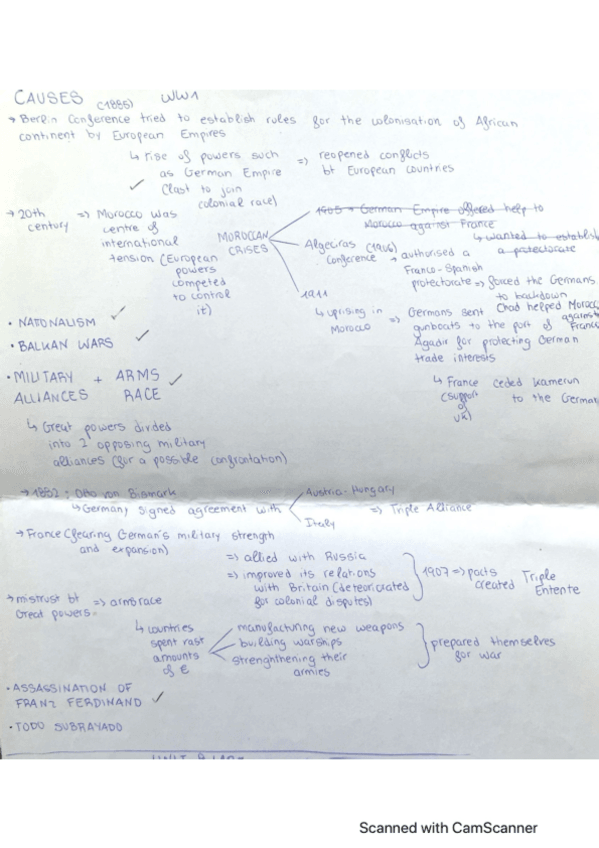 CAUSES (1885) WW1
→ Berlin Conference tried to establish rules for the colonisation of African
continent by European Empires
↳ rise of powers such
as German Empire
✓ (last to join
colonial race)
⇒ reopened conflicts
bt European countries
→ 20th
century
⇒ Morocco was
centre of
international
tension (European
powers
competed
to control
it)
MOROCCAN
CRISES
1905 → German Empire offered help to
Morocco against France
↳ wanted to establish
a protectorate
Algeciras (1906)
Conference → authorised a
Franco-Spanish
protectorate ⇒ forced the Germans
to backdown
(had helped Morocco
against
France
1911
↳ uprising in
Morocco
⇒ Germans sent
gunboats to the port of
Agadir for protecting German
trade interests
↳ France ceded Kamerun
(support
of
UK)
to the German
• NATIONALISM ✓
• BALKAN WARS ✓
• MILITARY + ARMS ✓
ALLIANCES RACE
↳ Great powers divided
into 2 opposing military
alliances (for a possible confrontation)
→ 1882: Otto von Bismark
↳ Germany signed agreement with
Austria-Hungary
Italy
⇒ Triple Alliance
→ France (fearing German's military strength
and expansion)
⇒ allied with Russia
⇒ improved its relations
with Britain (deteriorated
for colonial disputes)
1907 ⇒ pacts
created Triple
Entente
→ mistrust bt
Great powers
⇒ arms race
↳ countries
spent vast
amounts
of €
manufacturing new weapons
building warships
strenghthening their
armies
prepared themselves
for war
• ASSASSINATION OF
FRANZ FERDINAND ✓
• TODO SUBRAYADO
Scanned with CamScanner